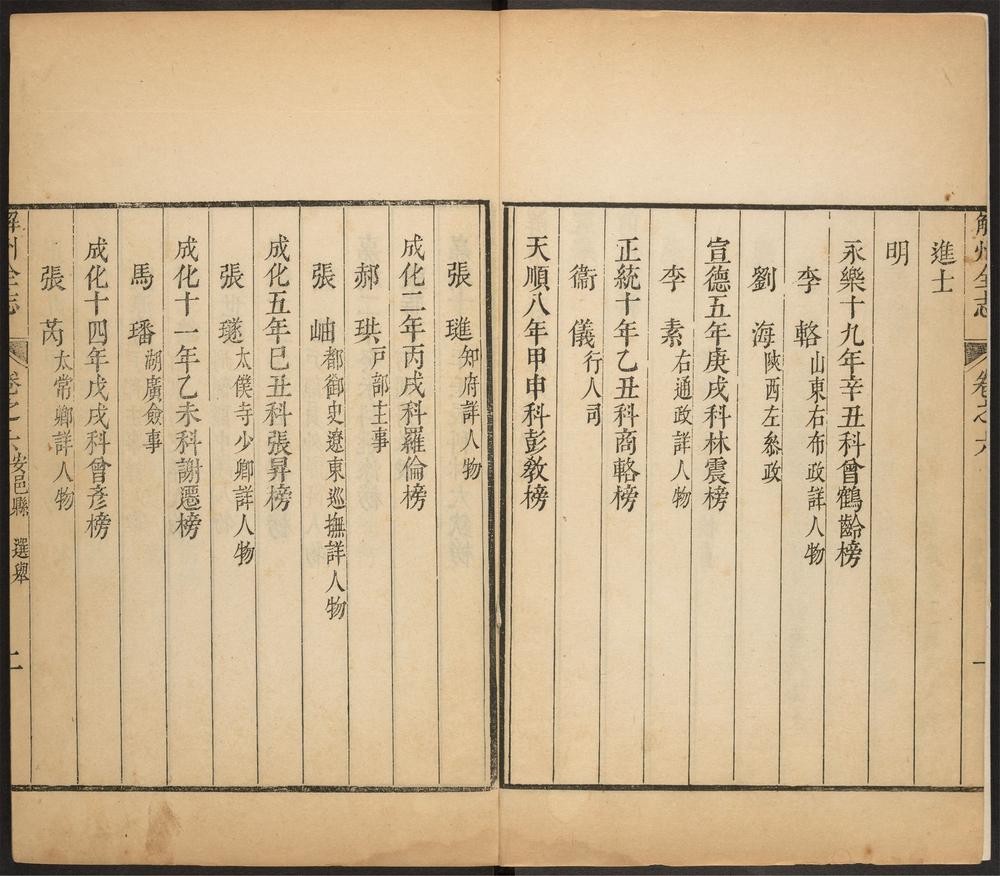 解州全志 卷之六 一
進士
明
永樂十九年辛丑科曾鶴齡榜
李輅 山東右布政詳人物
劉海 陝西左叅政
宣德五年庚戌科林震榜
李素 右通政詳人物
正統十年乙丑科商輅榜
衞儀 行人司
天順八年甲申科彭敎榜
張璡 知府詳人物
成化二年丙戌科羅倫榜
郝珙 戸部主事
張岫 都御史遼東巡撫詳人物
成化五年巳丑科張昇榜
張璲 太僕寺少卿詳人物
成化十一年乙未科謝遷榜
馬璠 湖廣僉事
成化十四年戊戌科曾彥榜
張芮 太常卿詳人物
解州全志 卷之六 安邑縣 選舉 二